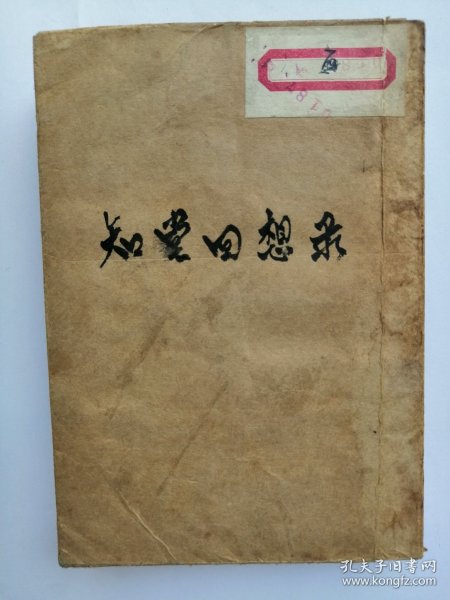 知堂回想录
孔夫子旧书网
www.kongfz.com